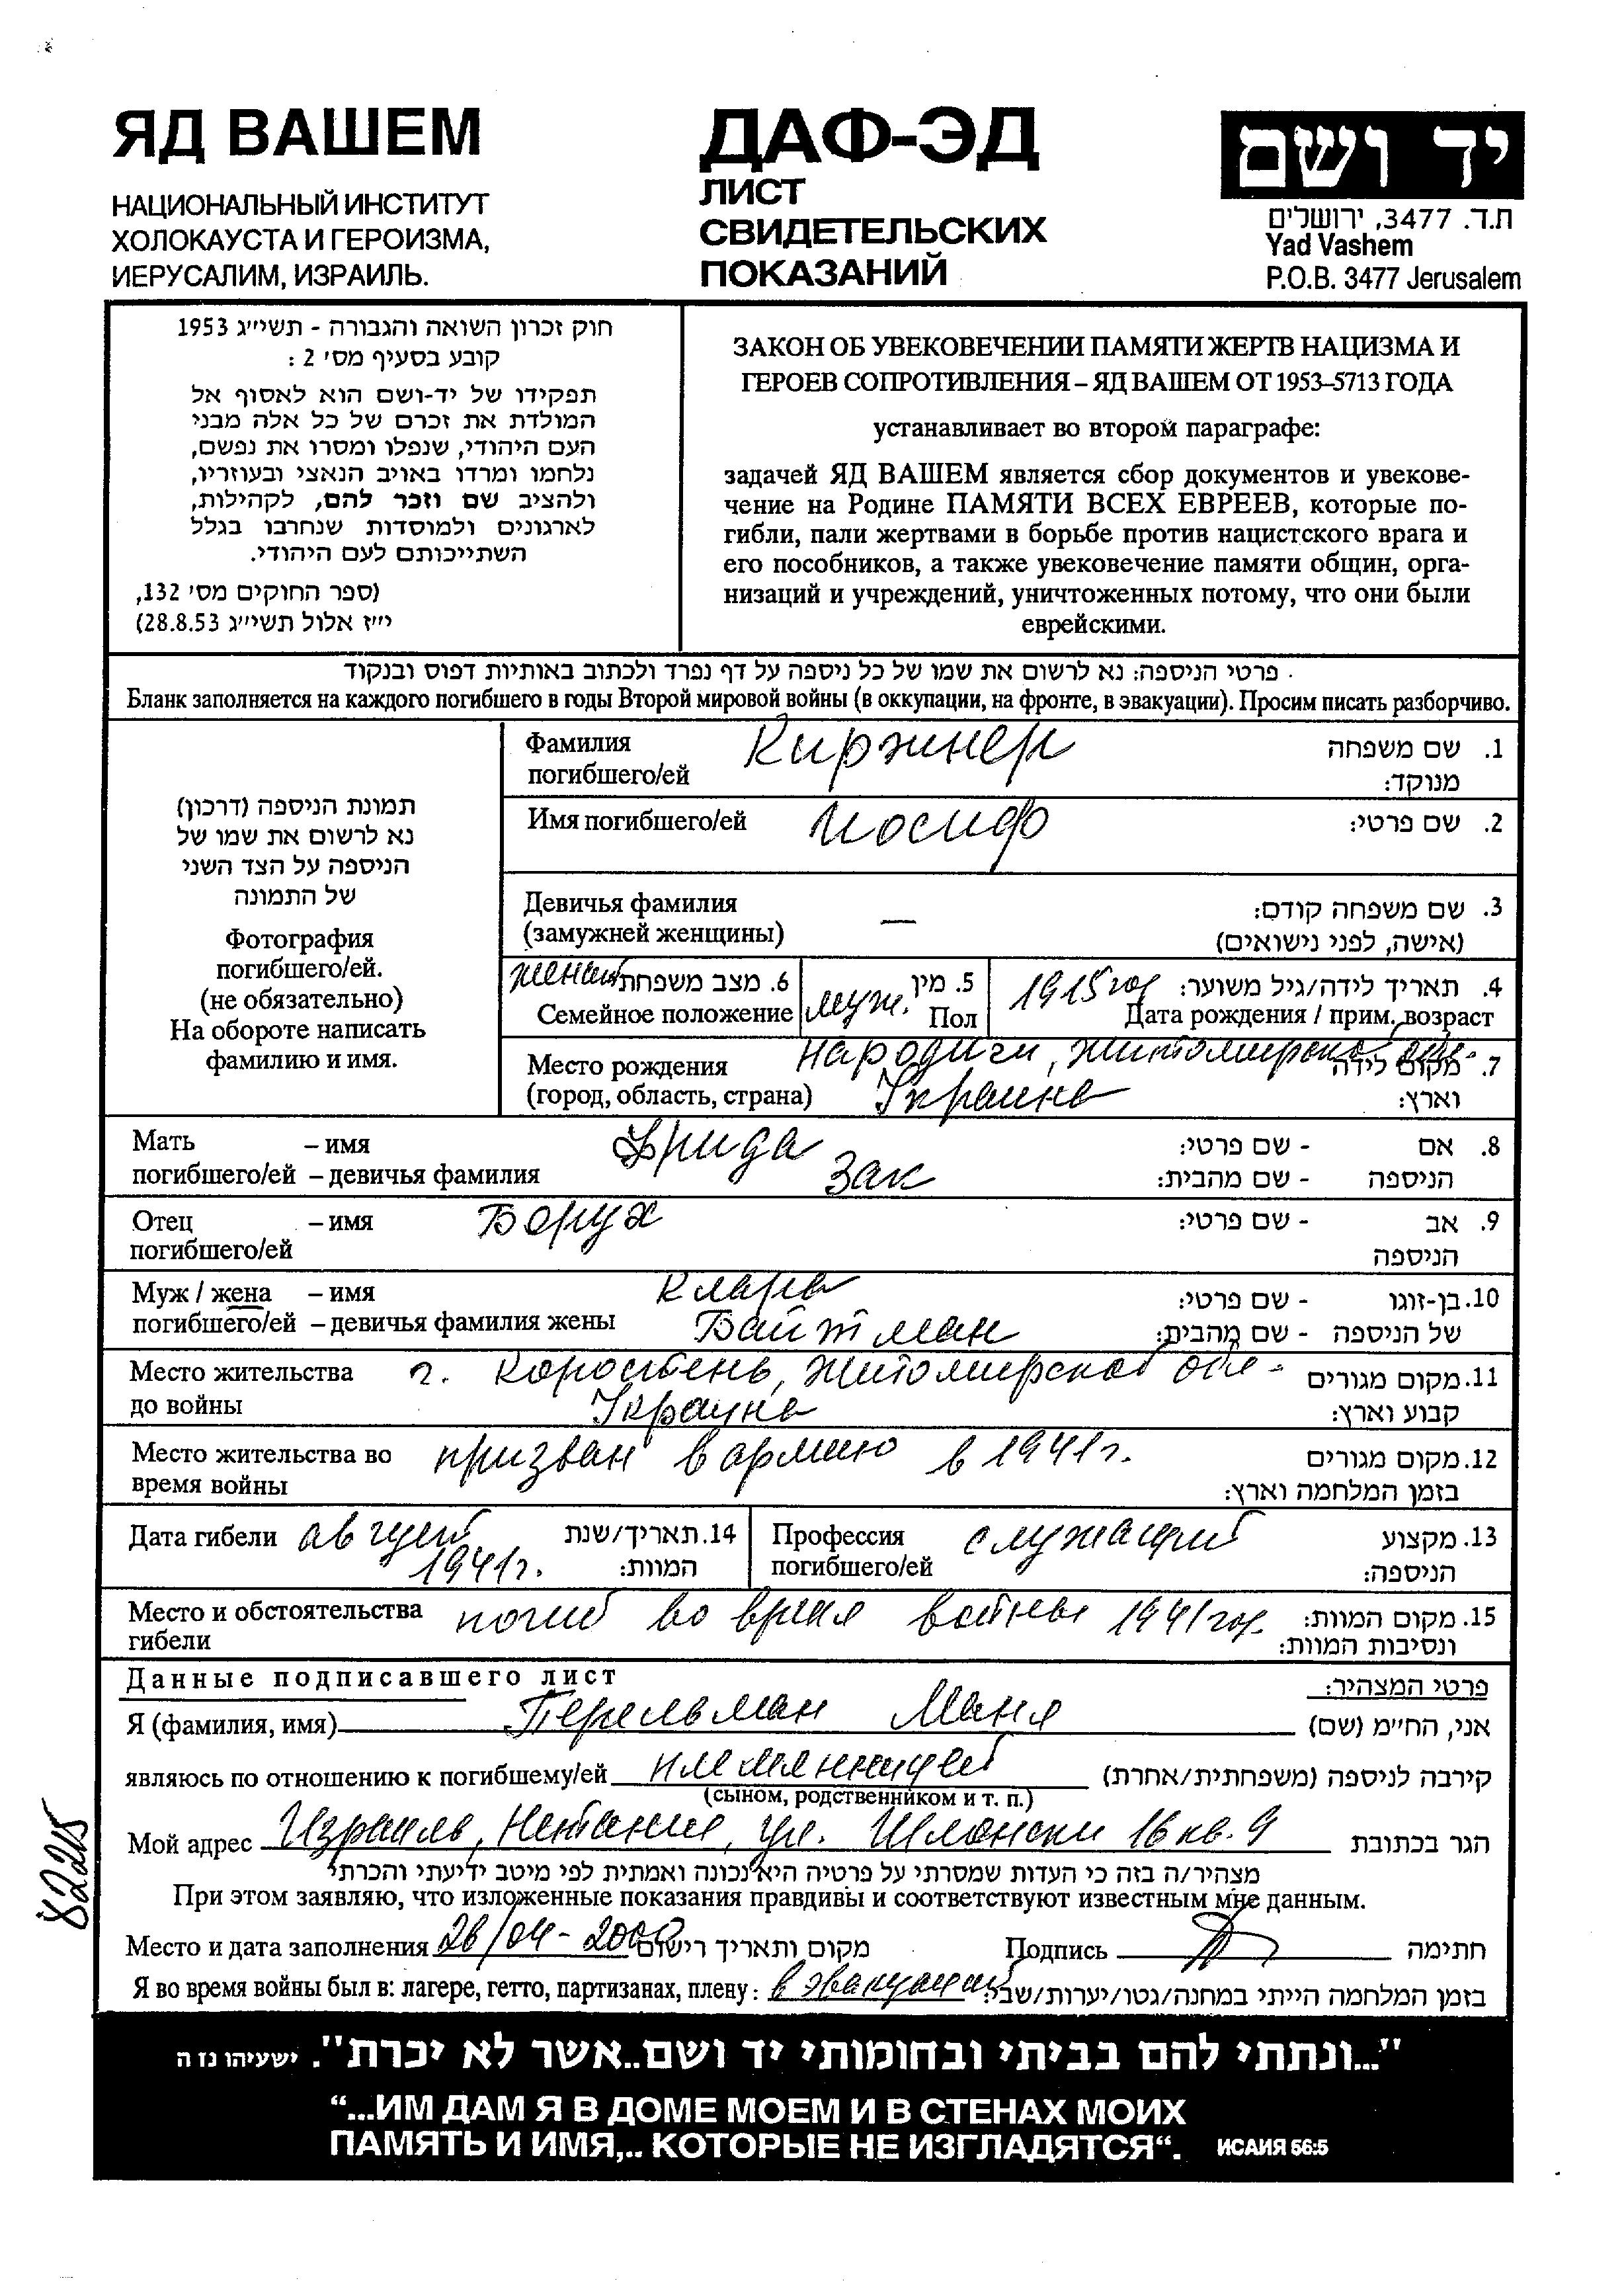 ЯД ВАШЕМ
НАЦИОНАЛЬНЫЙ ИНСТИТУТ
ХОЛОКАУСТА И ГЕРОИЗМА,
ИЕРУСАЛИМ, ИЗРАИЛЬ.
ДАФ-ЭД
ЛИСТ
СВИДЕТЕЛЬСКИХ
ПОКАЗАНИЙ
יד ושם
ת.ד. 3477, ירושלים
Yad Vashem
P.O.B. 3477 Jerusalem
חוק זכרון השואה והגבורה - תשי״ג 1953
קובע בסעיף מס׳ 2 :
תפקידו של יד-ושם הוא לאסוף אל
המולדת את זכרם של כל אלה מבני
העם היהודי, שנפלו ומסרו את נפשם,
נלחמו ומרדו באויב הנאצי ובעוזריו,
ולהציב שם וזכר להם, לקהילות,
לארגונים ולמוסדות שנחרבו בגלל
השתייכותם לעם היהודי.
(ספר החוקים מס׳ 132,
י״ז אלול תשי״ג 28.8.53)
ЗАКОН ОБ УВЕКОВЕЧЕНИИ ПАМЯТИ ЖЕРТВ НАЦИЗМА И
ГЕРОЕВ СОПРОТИВЛЕНИЯ – ЯД ВАШЕМ ОТ 1953–5713 ГОДА
устанавливает во втором параграфе:
задачей ЯД ВАШЕМ является сбор документов и увекове-
чение на Родине ПАМЯТИ ВСЕХ ЕВРЕЕВ, которые по-
гибли, пали жертвами в борьбе против нацистского врага и
его пособников, а также увековечение памяти общин, орга-
низаций и учреждений, уничтоженных потому, что они были
еврейскими.
פרטי הניספה: נא לרשום את שמו של כל ניספה על דף נפרד ולכתוב באותיות דפוס ובנקוד
Бланк заполняется на каждого погибшего в годы Второй мировой войны (в оккупации, на фронте, в эвакуации). Просим писать разборчиво.
תמונת הניספה (דרכון)
נא לרשום את שמו של
הניספה על הצד השני
של התמונה
Фотография
погибшего/ей.
(не обязательно)
На обороте написать
фамилию и имя.
Фамилия Киржнер 1. שם משפחה
погибшего/ей מנוקד:
Имя погибшего/ей Иосиф 2. שם פרטי:
Девичья фамилия — 3. שם משפחה קודם:
(замужней женщины) (אישה, לפני נישואים)
женат 6. מצב משפחתי 5. מין 1915 год 4. תאריך לידה/גיל משוער:
Семейное положение муж. Пол Дата рождения / прим. возраст
Место рождения Народичи, Житомирской обл. 7. מקום לידה
(город, область, страна) Украина וארץ:
Мать – имя Фрида 8. אם - שם פרטי:
погибшего/ей – девичья фамилия Зак הניספה - שם מהבית:
Отец – имя Борух 9. אב - שם פרטי:
погибшего/ей הניספה
Муж / жена – имя Клара 10. בן-זוגו - שם פרטי:
погибшего/ей – девичья фамилия жены Байтман של הניספה - שם מהבית:
Место жительства г. Коростень, Житомирской обл- 11. מקום מגורים
до войны Украина קבוע וארץ:
Место жительства во призван в армию в 1941 г. 12. מקום מגורים
время войны בזמן המלחמה וארץ:
Дата гибели август 14. תאריך/שנת Профессия служащий 13. מקצוע
1941 г. המוות: погибшего/ей הניספה:
Место и обстоятельства погиб во время войны 1941 год. 15. מקום המוות:
гибели ונסיבות המוות:
Данные подписавшего лист פרטי המצהיר:
Я (фамилия, имя) Перельман Маня אני, הח״מ (שם)
являюсь по отношению к погибшему/ей племянницей קירבה לניספה (משפחתית/אחרת)
(сыном, родственником и т. п.)
Мой адрес Израиль, Нетания, ул. Шлонски 16 кв. 9 הגר בכתובת
מצהיר/ה בזה כי העדות שמסרתי על פרטיה היא נכונה ואמתית לפי מיטב ידיעתי והכרתי
При этом заявляю, что изложенные показания правдивы и соответствуют известным мне данным.
Место и дата заполнения 26/04-2000 מקום ותאריך רישום Подпись חתימה
Я во время войны был в: лагере, гетто, партизанах, плену: в эвакуации בזמן המלחמה הייתי במחנה/גטו/יערות/שבי:
82215
"...ונתתי להם בביתי ובחומותי יד ושם..אשר לא יכרת". ישעיהו נז ה
“...ИМ ДАМ Я В ДОМЕ МОЕМ И В СТЕНАХ МОИХ
ПАМЯТЬ И ИМЯ,.. КОТОРЫЕ НЕ ИЗГЛАДЯТСЯ“. ИСАИЯ 56:5